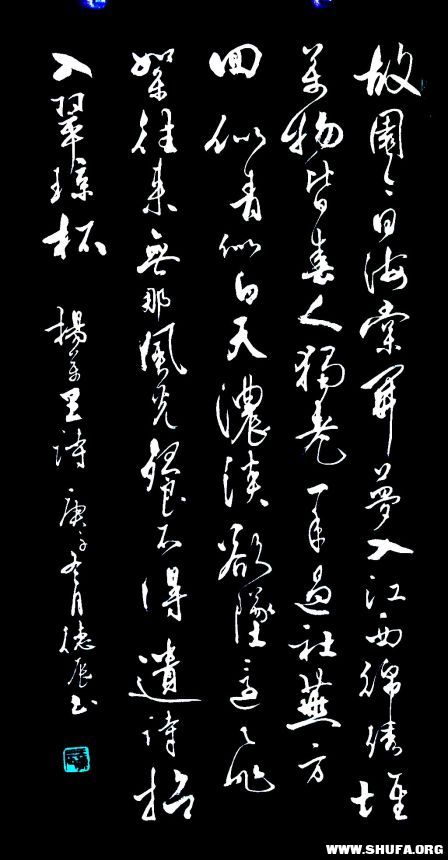 故園今日海棠開夢入江西錦繡堆
萬物皆春人獨老一年過社燕方
回似青似白天濃淡欲墜還飛
絮往来無那風光餐不得遺詩招
入翠瓊杯 楊萬里詩 庚子冬月德辰书
WWW.SHUFA.ORG